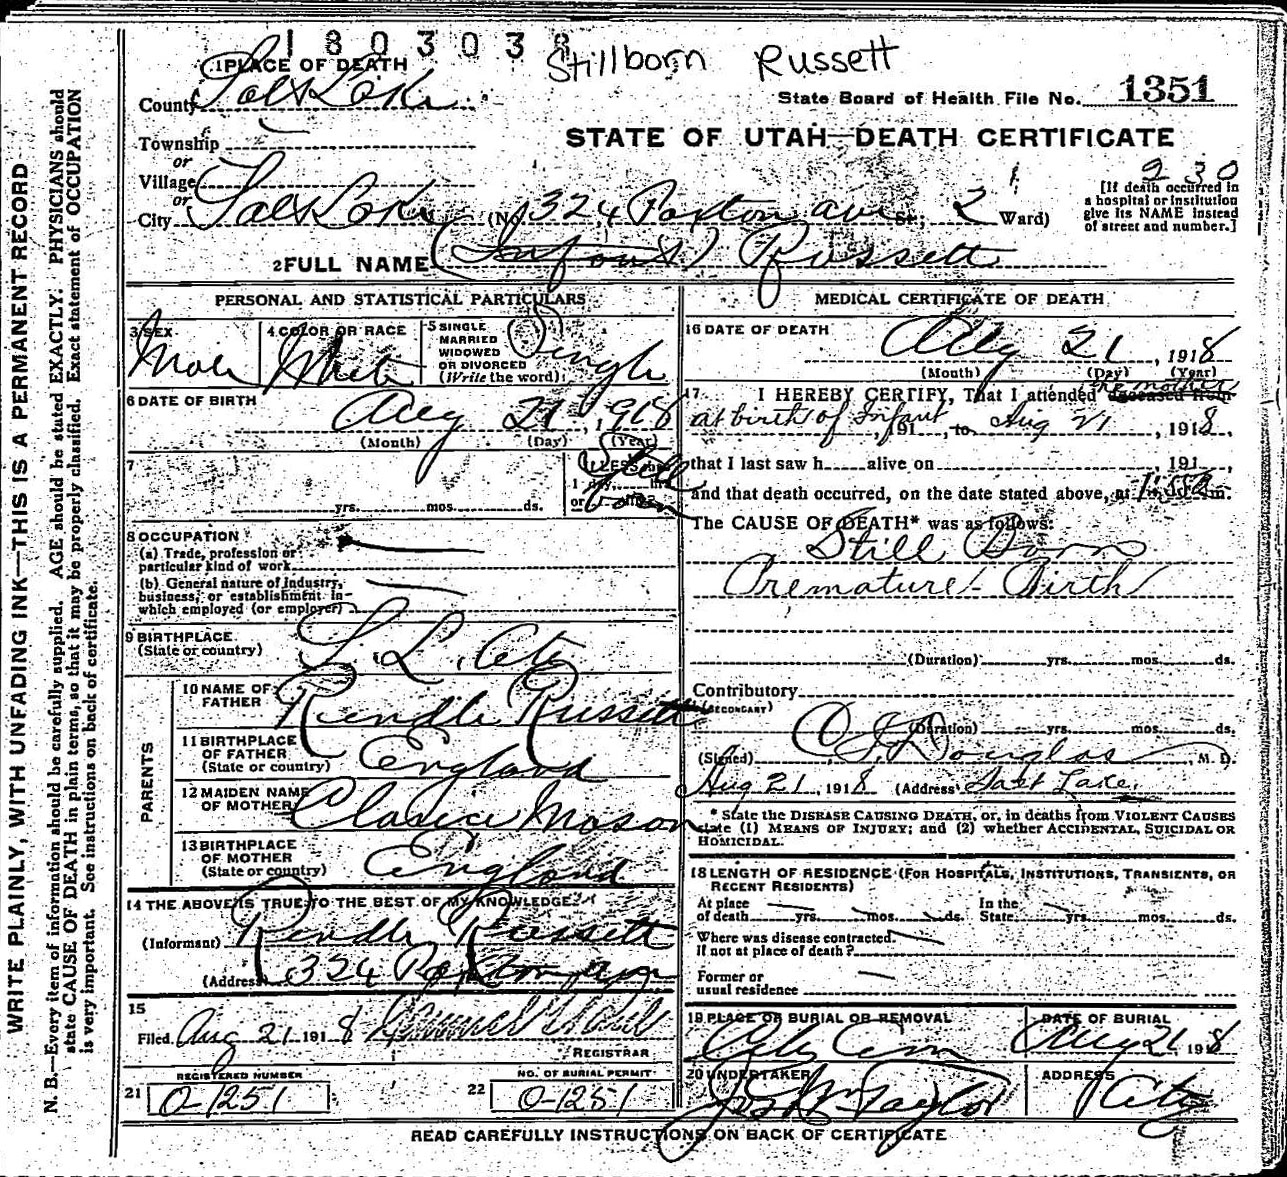 1803038
Stillborn Russett
1 PLACE OF DEATH
County Salt Lake
State Board of Health File No. 1351
Township
STATE OF UTAH—DEATH CERTIFICATE
or
Village
230
or
City Salt Lake (No. 324 Paxton ave St., 2 Ward)
[If death occurred in
a hospital or institution
give its NAME instead
of street and number.]
2 FULL NAME (Infant) Russett
PERSONAL AND STATISTICAL PARTICULARS
3 SEX Male
4 COLOR OR RACE White
5 SINGLE
MARRIED
WIDOWED
OR DIVORCED
(Write the word) Single
6 DATE OF BIRTH
Aug 21, 1918
(Month) (Day) (Year)
7
yrs. mos. ds.
If LESS than
1 day, hrs.
or min?
Still
Born
8 OCCUPATION
(a) Trade, profession or
particular kind of work
(b) General nature of industry,
business, or establishment in
which employed (or employer)
9 BIRTHPLACE
(State or country) S. L. City
PARENTS
10 NAME OF
FATHER Rendle Russett
11 BIRTHPLACE
OF FATHER
(State or country) England
12 MAIDEN NAME
OF MOTHER Clarice Mason
13 BIRTHPLACE
OF MOTHER
(State or country) England
14 THE ABOVE IS TRUE TO THE BEST OF MY KNOWLEDGE
(Informant) Rendle Russett
(Address) 324 Paxton ave
15
Filed Aug 21 1918
REGISTRAR
REGISTERED NUMBER
21 O-1251
NO. OF BURIAL PERMIT
22 O-1251
MEDICAL CERTIFICATE OF DEATH
16 DATE OF DEATH
Aug 21, 1918
(Month) (Day) (Year)
17 I HEREBY CERTIFY, That I attended deceased from the mother
at birth of Infant, 191, to Aug 21, 1918,
that I last saw h alive on , 191,
and that death occurred, on the date stated above, at m.
The CAUSE OF DEATH* was as follows:
Still Born
Premature Birth
(Duration) yrs. mos. ds.
Contributory
(SECONDARY)
(Duration) yrs. mos. ds.
(Signed) Douglas, M. D.
Aug 21, 1918 (Address) Salt Lake.
* State the DISEASE CAUSING DEATH, or, in deaths from VIOLENT CAUSES
state (1) MEANS OF INJURY; and (2) whether ACCIDENTAL, SUICIDAL OR
HOMICIDAL.
18 LENGTH OF RESIDENCE (FOR HOSPITALS, INSTITUTIONS, TRANSIENTS, OR
RECENT RESIDENTS)
At place
of death yrs. mos. ds.
In the
State yrs. mos. ds.
Where was disease contracted,
if not at place of death?
Former or
usual residence
19 PLACE OF BURIAL OR REMOVAL
City Cem
DATE OF BURIAL
Aug 21, 1918
20 UNDERTAKER
Taylor
ADDRESS
City
READ CAREFULLY INSTRUCTIONS ON BACK OF CERTIFICATE
WRITE PLAINLY, WITH UNFADING INK—THIS IS A PERMANENT RECORD
N. B.—Every item of information should be carefully supplied. AGE should be stated EXACTLY. PHYSICIANS should
state CAUSE OF DEATH in plain terms, so that it may be properly classified. Exact statement of OCCUPATION
is very important. See instructions on back of certificate.